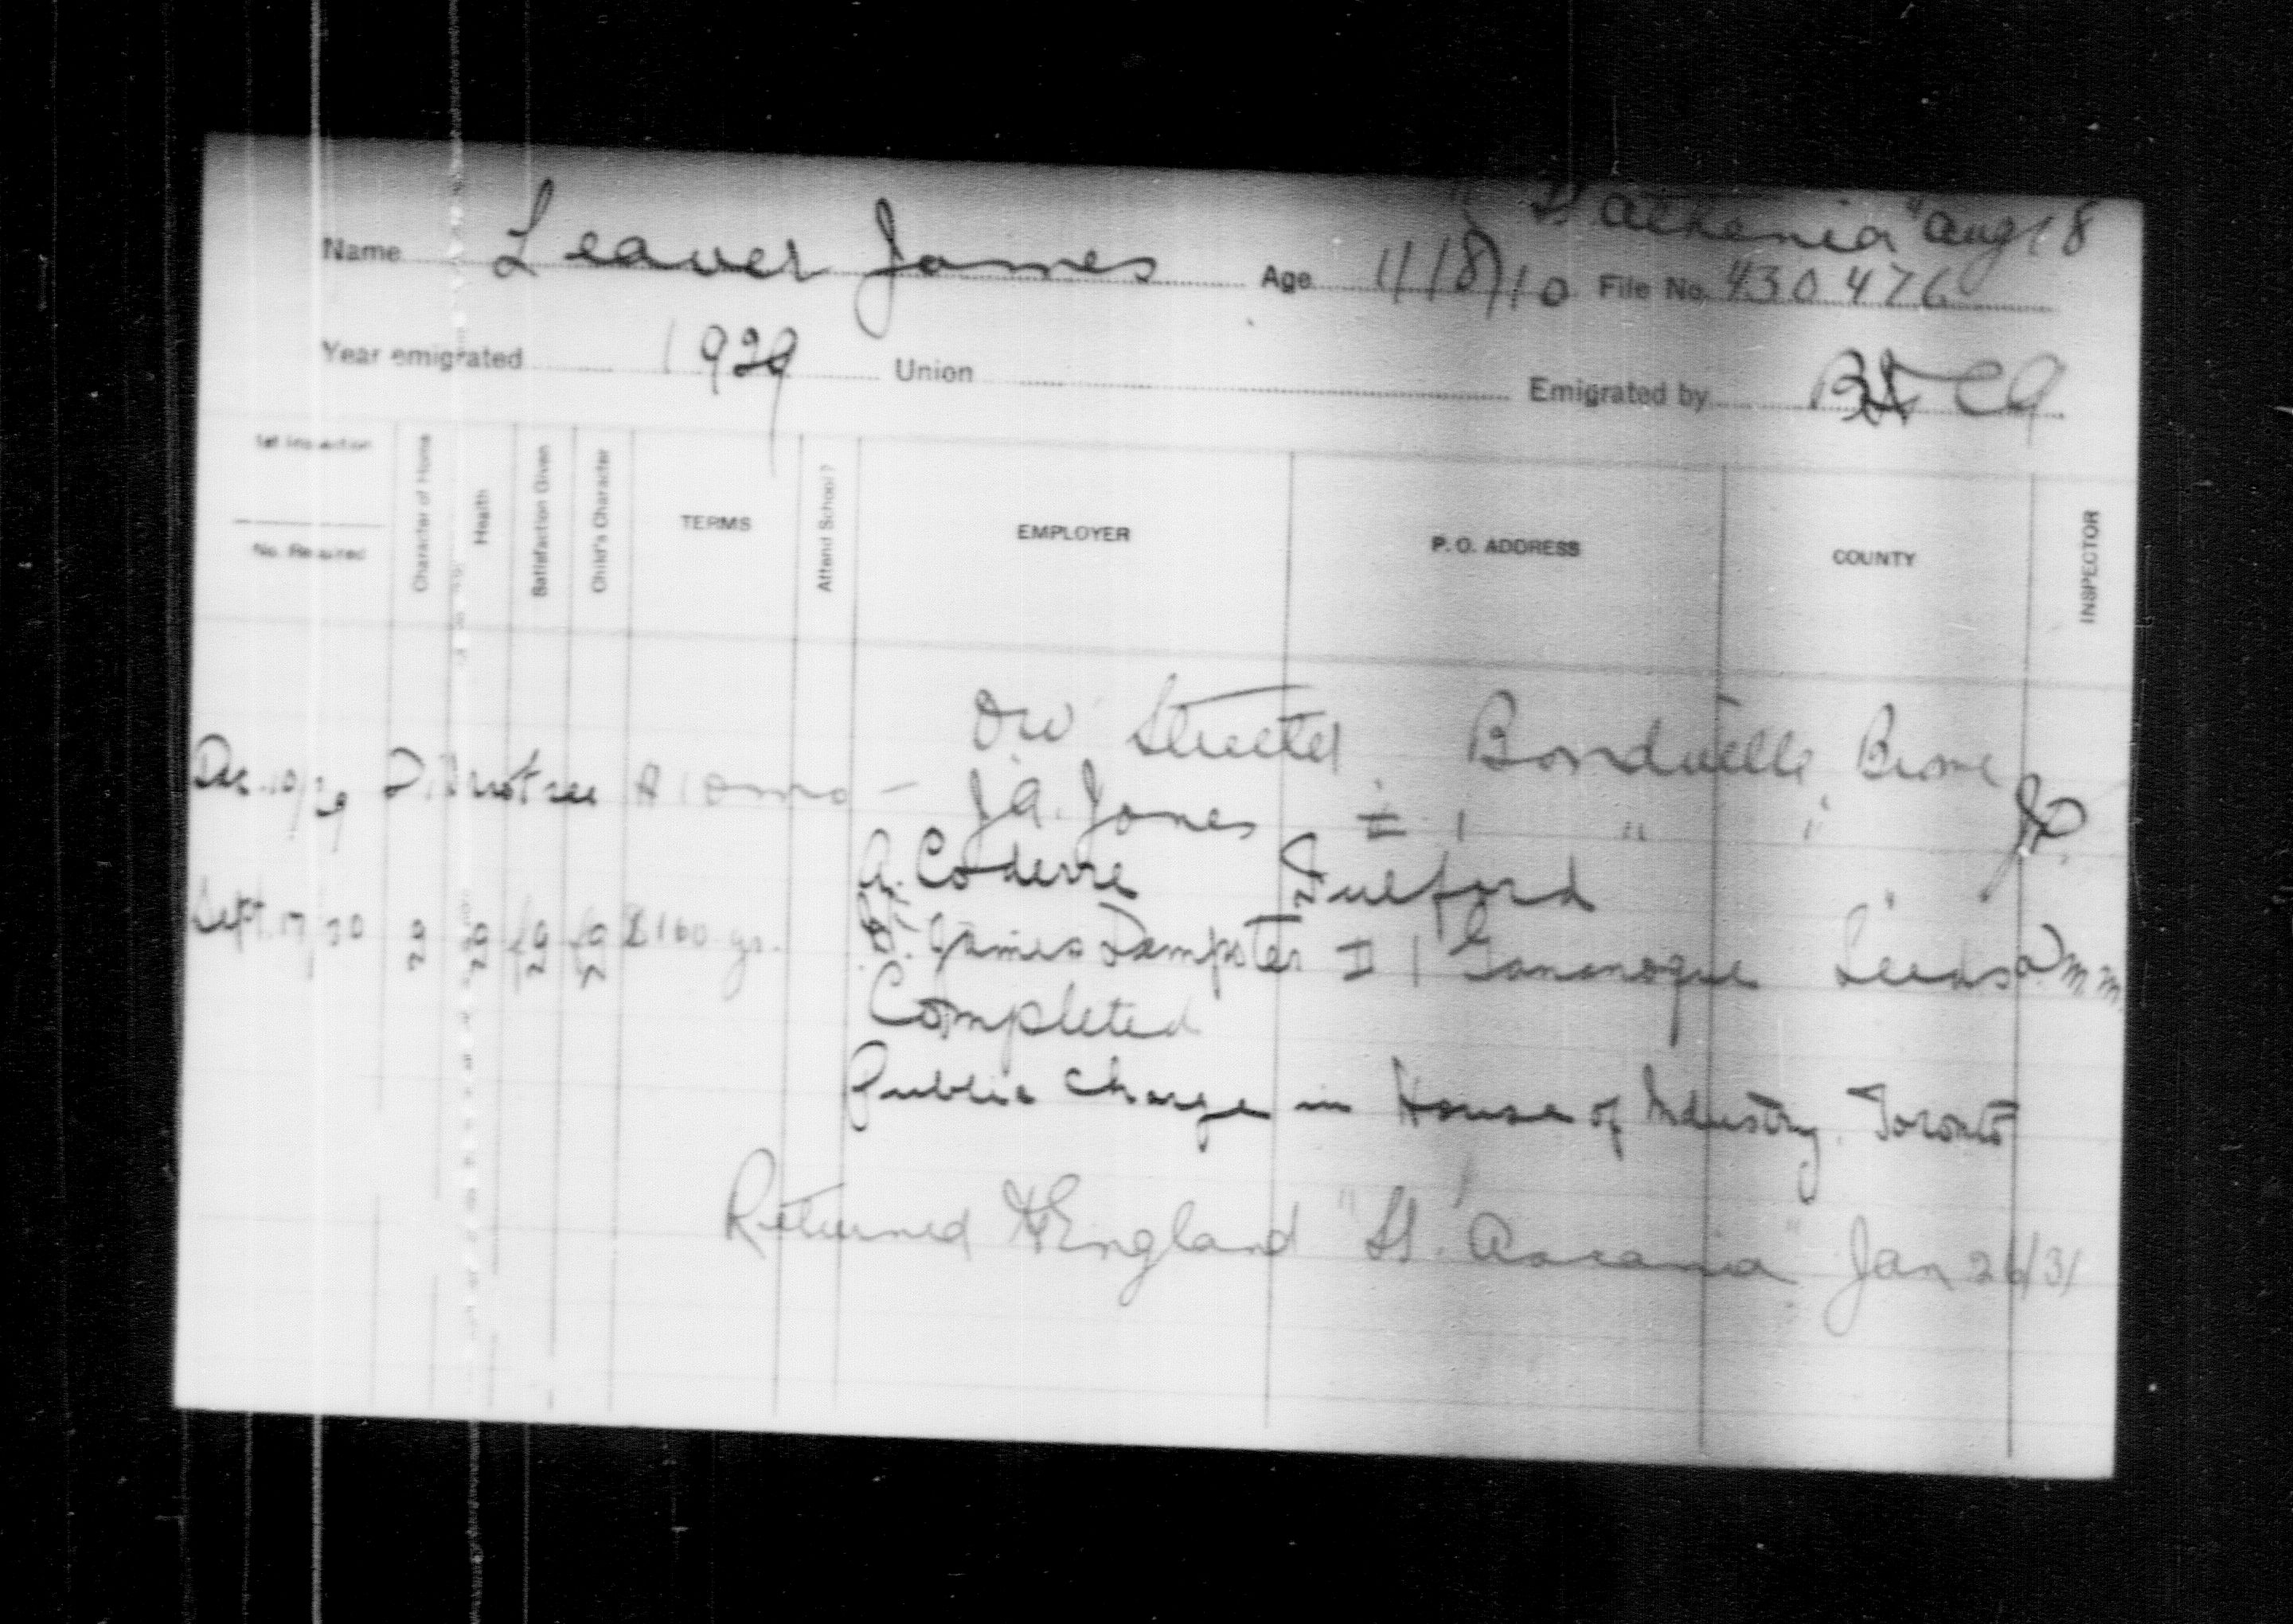 "S. Athenia" Aug 18
Name Leaver James Age 11/8/10 File No. 430476
Year emigrated 1929 Union Emigrated by
1st Inspection
No. Required
Character of Home
Health
Satisfaction Given
Child's Character
TERMS
Attend School?
EMPLOYER
P. O. ADDRESS
COUNTY
INSPECTOR
OW Streeter Bondville Brome
Dec. 10/29 D. Not see 10 mo - J.A. Jones # 1 " "
A. Coderre Fulford "
Sept. 17/30 $160 yr. James Dempster # 1 Gananoque Leeds
Completed
Public Charge in House of Industry. Toronto
Returned to England "SS. Ascania" Jan 26/31